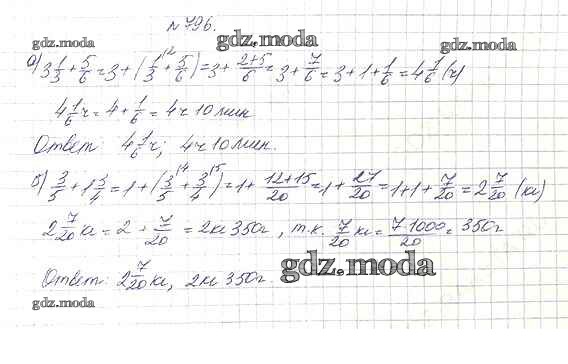 № 796.
gdz.moda gdz.moda gdz.moda
а) 3 1/3 + 5/6 = 3 + (1/3^(2 + 5/6) = 3 + (2+5)/6 = 3 + 7/6 = 3 + 1 + 1/6 = 4 1/6 (ч)
4 1/6 ч = 4 + 1/6 = 4 ч 10 мин
Ответ: 4 1/6 ч; 4 ч 10 мин.
gdz.moda gdz.moda gdz.moda
б) 3/5 + 1 3/4 = 1 + (3/5^(4 + 3/4^(5) = 1 + (12+15)/20 = 1 + 27/20 = 1 + 1 + 7/20 = 2 7/20 (кг)
2 7/20 кг = 2 + 7/20 = 2 кг 350 г, т.к. 7/20 кг = (7·1000)/20 = 350 г
gdz.moda
Ответ: 2 7/20 кг, 2 кг 350 г.
gdz.moda gdz.moda